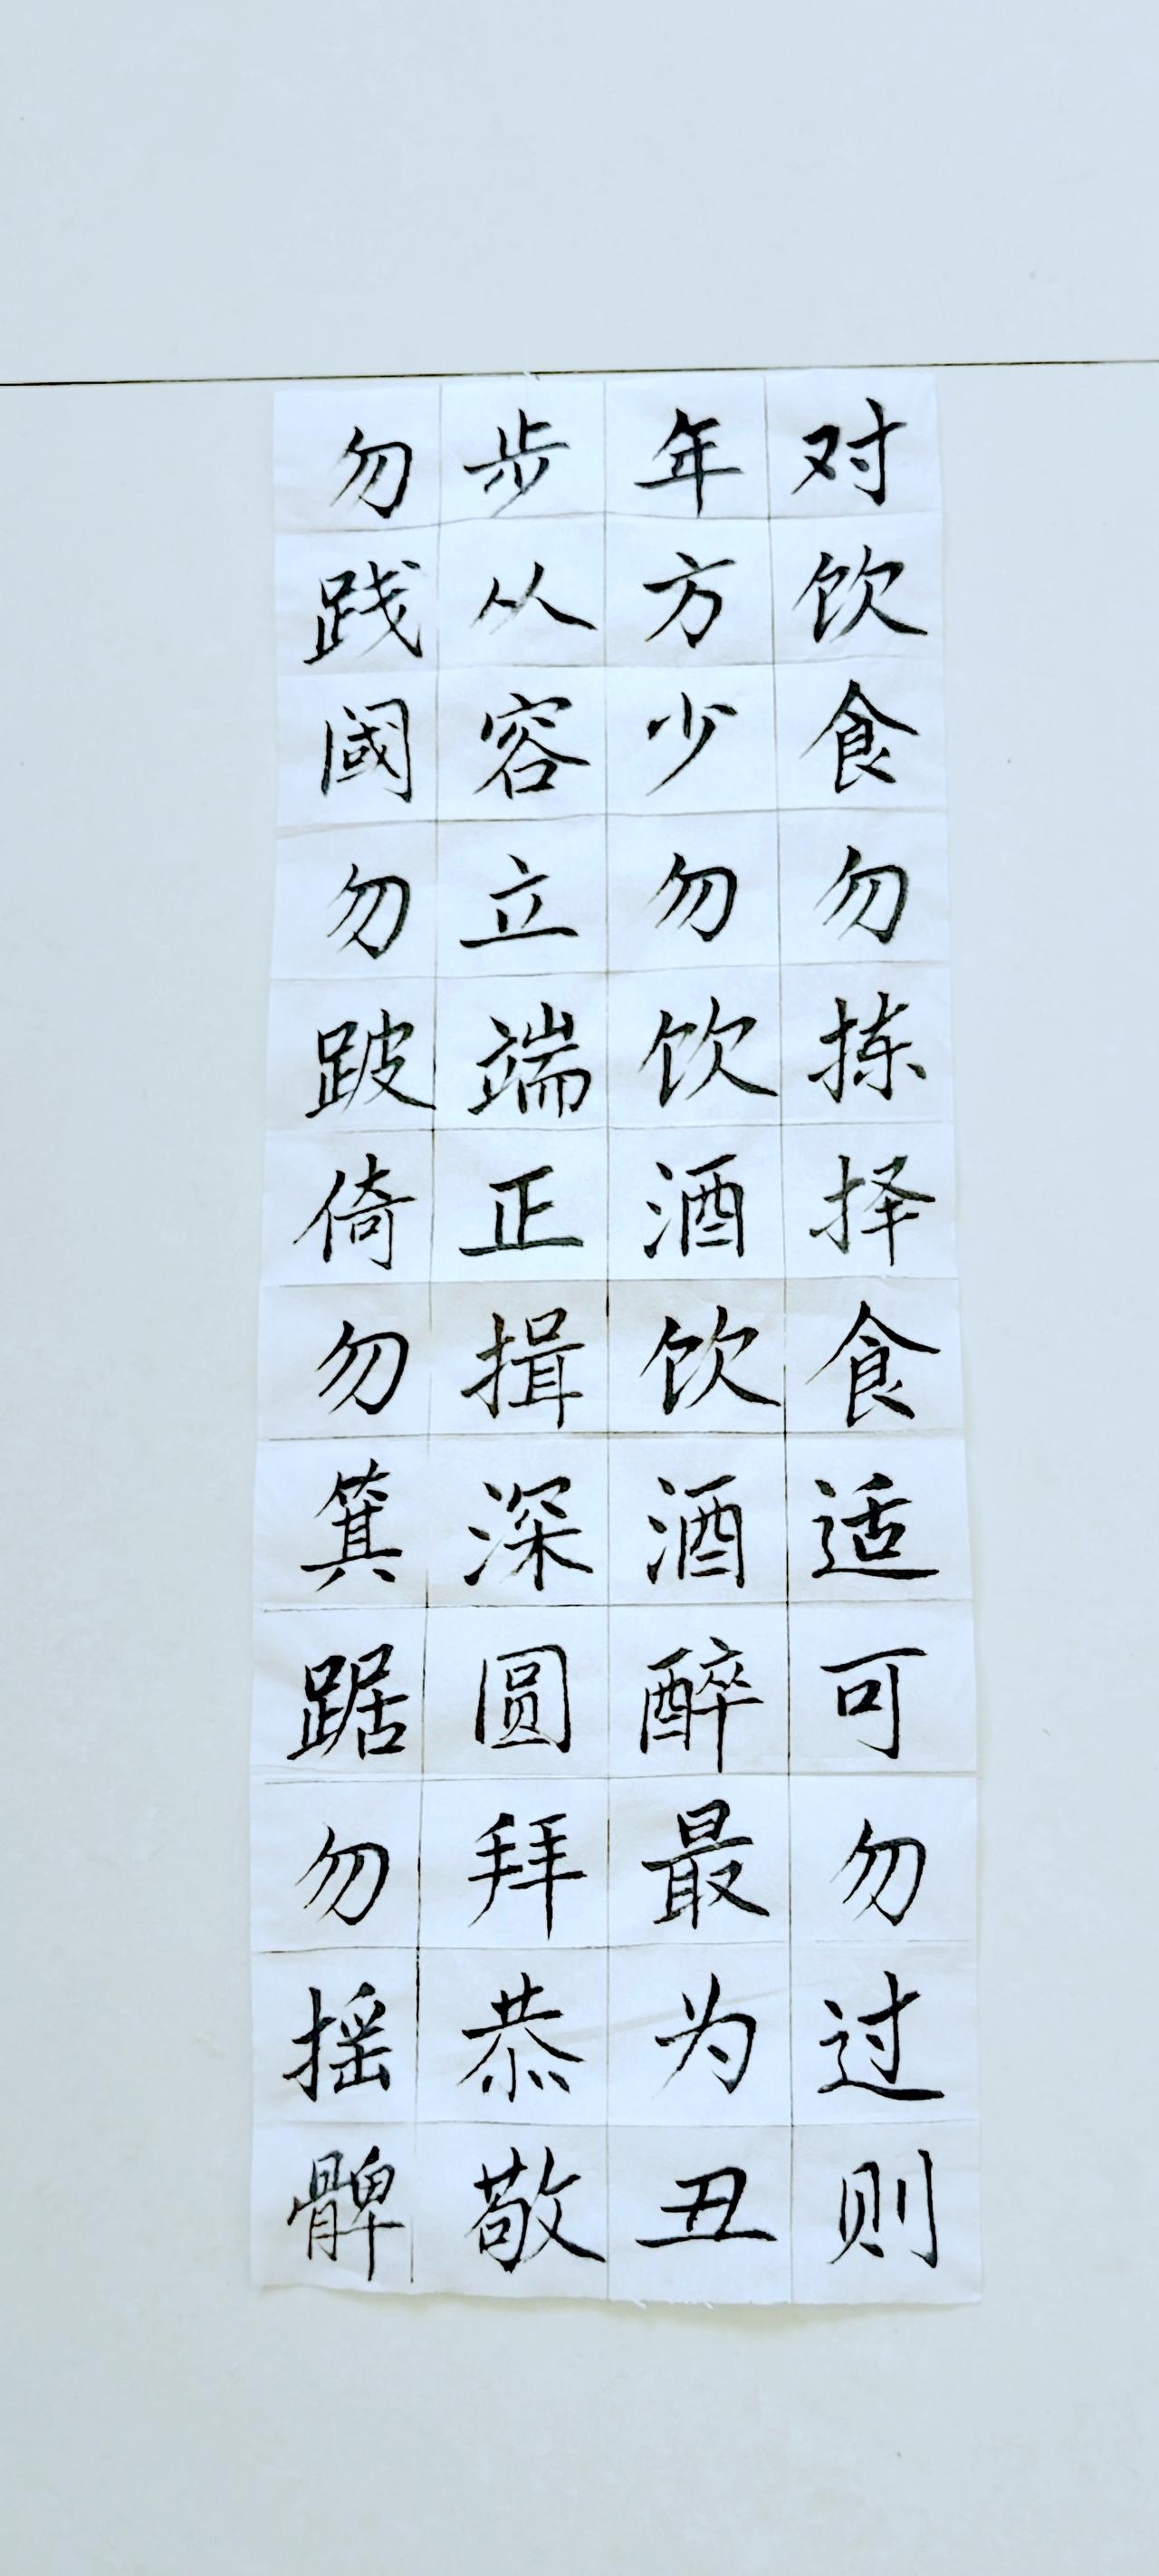 对饮食勿拣择食适可勿过则
年方少勿饮酒饮酒醉最为丑
步从容立端正揖深圆拜恭敬
勿践阈勿跛倚勿箕踞勿摇髀